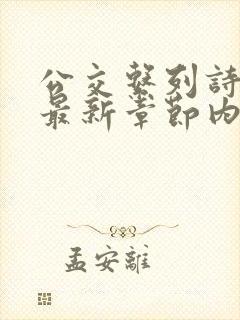 公交繫列詩
最新章節內
孟安離